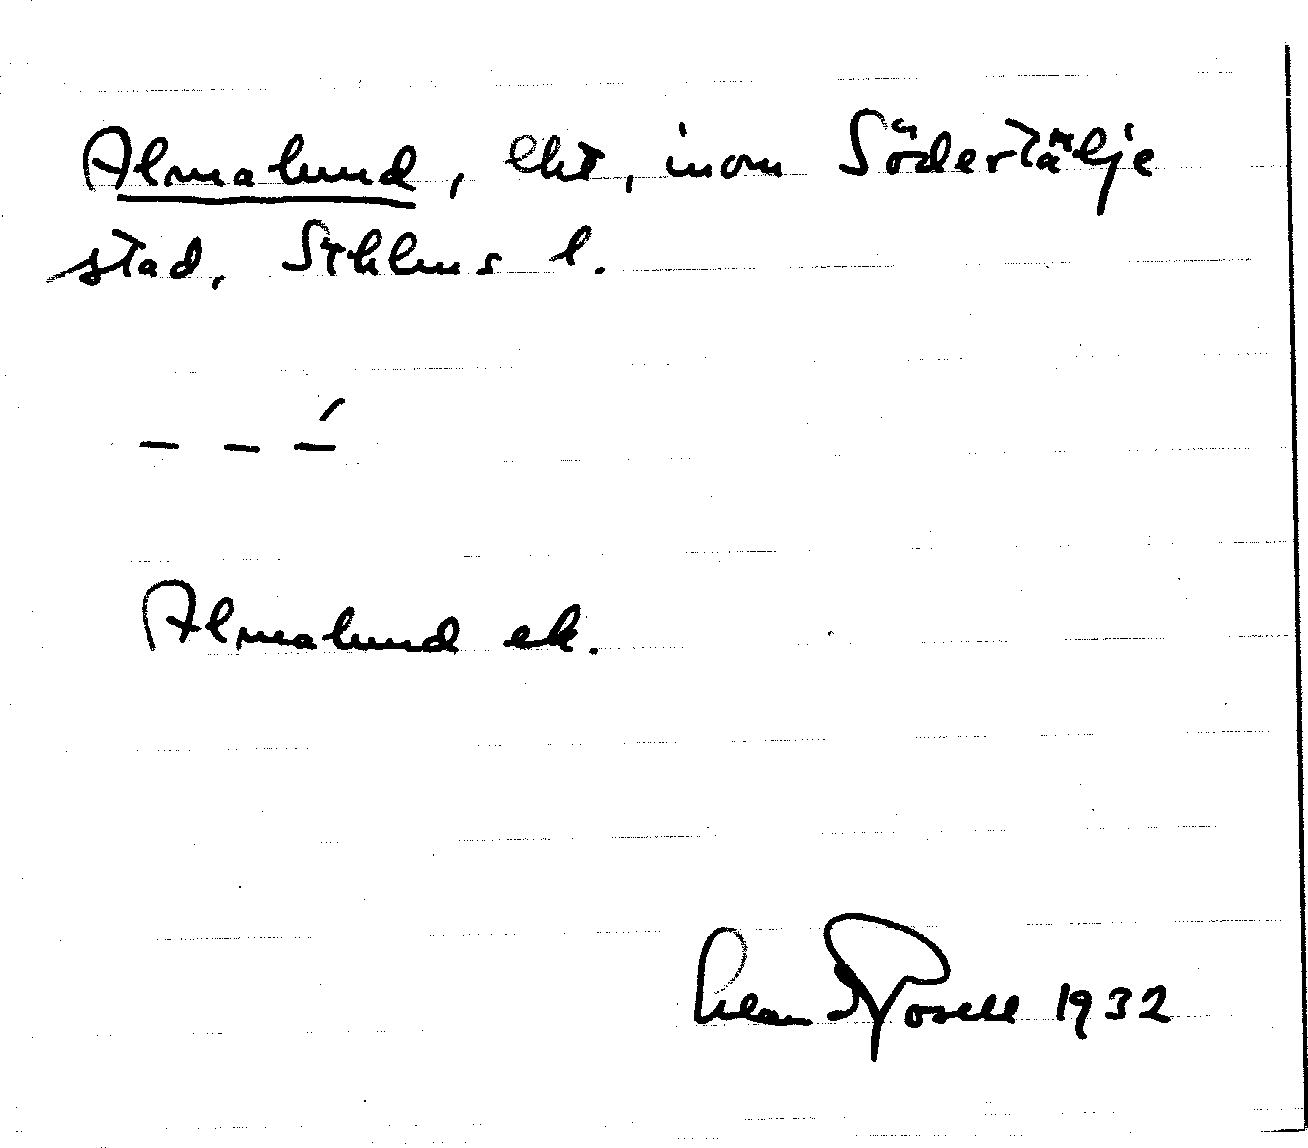 Almalund, lht, inom Södertälje
stad, Sthlms l.
– – –́
Almalund ek.
1932